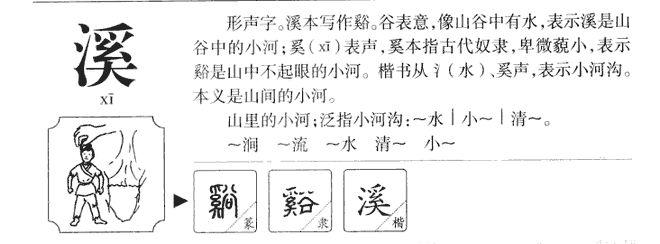 溪
xī
形声字。溪本写作谿。谷表意,像山谷中有水,表示溪是山
谷中的小河;奚(xī)表声,奚本指古代奴隶,卑微藐小,表示
谿是山中不起眼的小河。楷书从氵(水)、奚声,表示小河沟。
本义是山间的小河。
山里的小河;泛指小河沟:～水｜小～｜清～。
～涧 ～流 ～水 清～ 小～
谿 篆
谿 隶
溪 楷